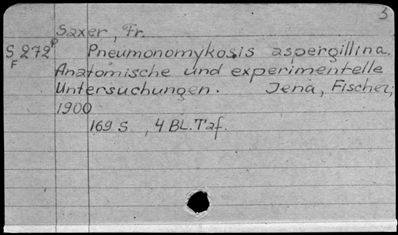 3
Saxer, Fr.
S 272 Pneumonomykosis aspergillina.
F
Anatomische und experimentelle
Untersuchungen. Jena, Fischer,
1900
169 S, 4 BL.Taf.